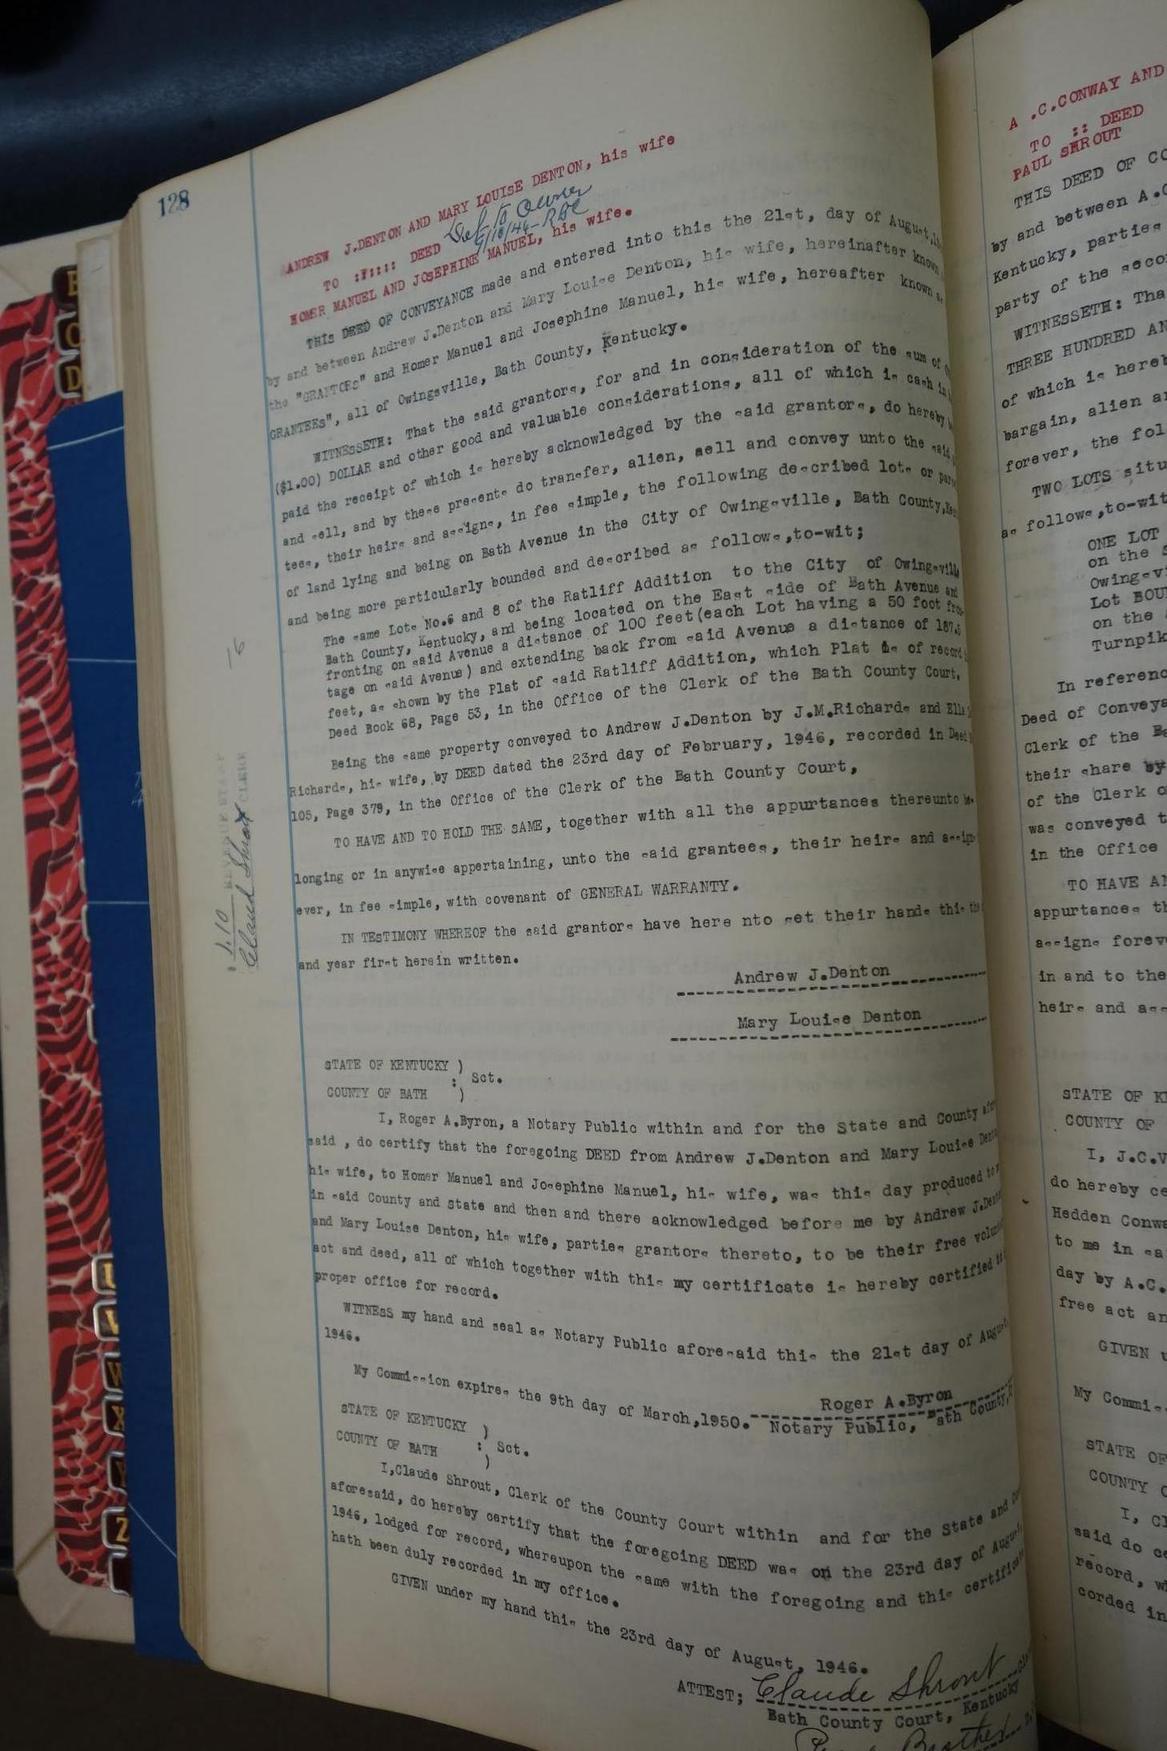 128
ANDREW J.DENTON AND MARY LOUISE DENTON, his wife
TO ::::: DEED
HOMER MANUEL AND JOSEPHINE MANUEL, his wife.
THIS DEED OF CONVEYANCE made and entered into this the 21st, day of August,
by and between Andrew J.Denton and Mary Louise Denton, his wife, hereinafter known
the "GRANTORS" and Homer Manuel and Josephine Manuel, his wife, hereafter known as
GRANTEES", all of Owingsville, Bath County, Kentucky.
WITNESSETH: That the said grantors, for and in consideration of the sum of
($1.00) DOLLAR and other good and valuable considerations, all of which is cash in
paid the receipt of which is hereby acknowledged by the said grantors, do hereby
and sell, and by these presents do transfer, alien, sell and convey unto the said
tees, their heirs and assigns, in fee simple, the following described lots or
of land lying and being on Bath Avenue in the City of Owingsville, Bath County,
and being more particularly bounded and described as follows,to-wit;
The same Lots No.6 and 8 of the Ratliff Addition to the City of Owingsville
Bath County, Kentucky, and being located on the East side of Bath Avenue and
fronting on said Avenue a distance of 100 feet(each Lot having a 50 foot
tage on said Avenue) and extending back from said Avenue a distance of 187.5
feet, as shown by the Plat of said Ratliff Addition, which Plat is of record
Deed Book 68, Page 53, in the Office of the Clerk of the Bath County Court.
Being the same property conveyed to Andrew J.Denton by J.M.Richards and
Richards, his wife, by DEED dated the 23rd day of February, 1946, recorded in Deed
105, Page 379, in the Office of the Clerk of the Bath County Court,
TO HAVE AND TO HOLD THE SAME, together with all the appurtances thereunto be-
longing or in anywise appertaining, unto the said grantees, their heirs and assigns
ever, in fee simple, with covenant of GENERAL WARRANTY.
IN TESTIMONY WHEREOF the said grantors have here nto set their hands this the
and year first herein written.
Andrew J.Denton
Mary Louise Denton
STATE OF KENTUCKY )
: Sct.
COUNTY OF BATH )
I, Roger A.Byron, a Notary Public within and for the State and County
said , do certify that the foregoing DEED from Andrew J.Denton and Mary Louise
his wife, to Homer Manuel and Josephine Manuel, his wife, was this day produced to
in said County and State and then and there acknowledged before me by Andrew J.
and Mary Louise Denton, his wife, parties grantors thereto, to be their free
act and deed, all of which together with this my certificate is hereby certified
proper office for record.
WITNESS my hand and seal as Notary Public aforesaid this the 21st day of August
1946.
My Commission expires the 9th day of March,1950.
Roger A.Byron
Notary Public, Bath County,
STATE OF KENTUCKY )
: Sct.
COUNTY OF BATH )
I,Claude Shrout, Clerk of the County Court within and for the State and
aforesaid, do hereby certify that the foregoing DEED was on the 23rd day of August,
1946, lodged for record, whereupon the same with the foregoing and this certificate
hath been duly recorded in my office.
GIVEN under my hand this the 23rd day of August, 1946.
ATTEST; Claude Shrout
Bath County Court, Kentucky
1.10 REVENUE STAMP
Claud Shrout CLERK
A .C.CONWAY AND
TO :: DEED
PAUL SHROUT
THIS DEED OF
by and between A.
Kentucky, parties
party of the
WITNESSETH:
THREE HUNDRED
of which is
bargain, alien
forever, the
TWO LOTS
as follows,to-wit
ONE LOT
on the
Lot
on the
In
Deed of
Clerk of the
their share by
of the Clerk
was conveyed
in the Office
TO HAVE
appurtances
assigns
in and to the
heirs and
STATE OF
COUNTY OF
I, J.C.
do hereby
Hedden
to me in
day by A.C.
free act
GIVEN
My
STATE OF
COUNTY
I,
said do
record,
corded in